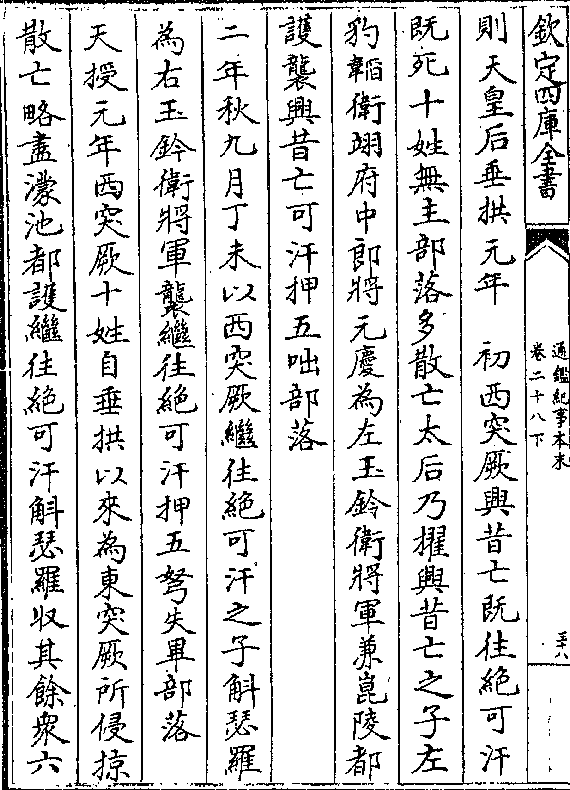 欽定四庫全書
通鑑紀事本末
卷二十八下
三十八
則天皇后垂拱元年　初西突厥興昔亡既往絶可汗
既死十姓無主部落多散亡太后乃擢興昔亡之子左
豹韜衛翊府中郎將元慶為左玉鈐衛將軍兼崑陵都
護襲興昔亡可汗押五咄部落
二年秋九月丁未以西突厥繼往絶可汗之子斛瑟羅
為右玉鈐衛將軍襲繼往絶可汗押五弩失畢部落
天授元年西突厥十姓自垂拱以來為東突厥所侵掠
散亡略盡濛池都護繼往絶可汗斛瑟羅收其餘衆六